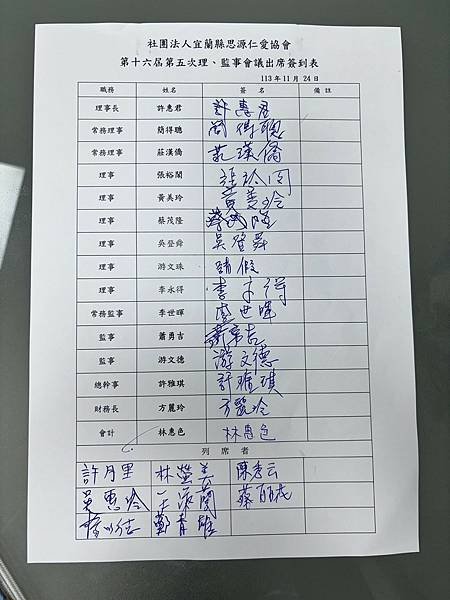 社團法人宜蘭縣思源仁愛協會
第十六屆第五次理、監事會議出席簽到表
113年11月24日
職務 姓名 簽名 備註
理事長 許惠君 許惠君
常務理事 簡得聰 簡得聰
常務理事 莊漢僑 莊漢僑
理事 張裕閣 張裕閣
理事 黃美玲 黃美玲
理事 蔡茂隆 蔡茂隆
理事 吳登舜 吳登舜
理事 游文珠 請假
理事 李永得 李永得
常務監事 李世暉 李世暉
監事 蕭勇吉 蕭勇吉
監事 游文德 游文德
總幹事 許雅琪 許雅琪
財務長 方麗玲 方麗玲
會計 林惠色 林惠色
列席者
許月里 林螢美 陳秀云
吳惠玲 王淑蘭
鄭青雄